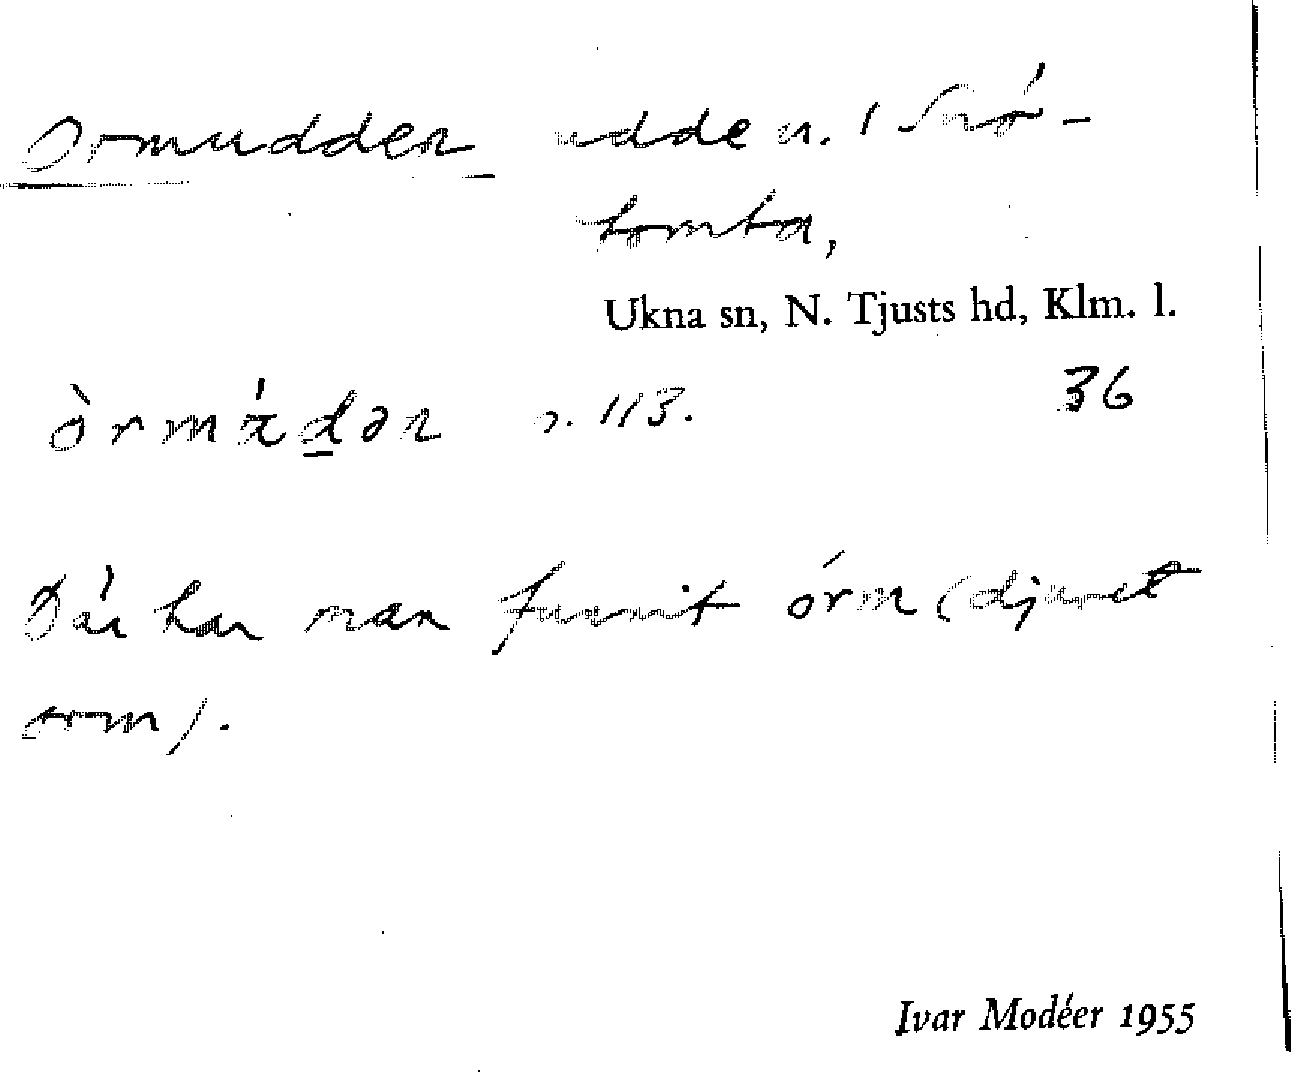 Ormudden udde n. i Snö-
tomta,
Ukna sn, N. Tjusts hd, Klm. l.
òrmá̤d̲ən s. 113. 36
Där har man funnit órm (djuret
orm).
Ivar Modéer 1955